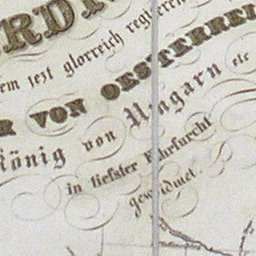 RDI
em jezt glorreich regieren
R VON OESTERREI
König von Ungarn etc
in tiefster Ehrfurcht
gewidmet.